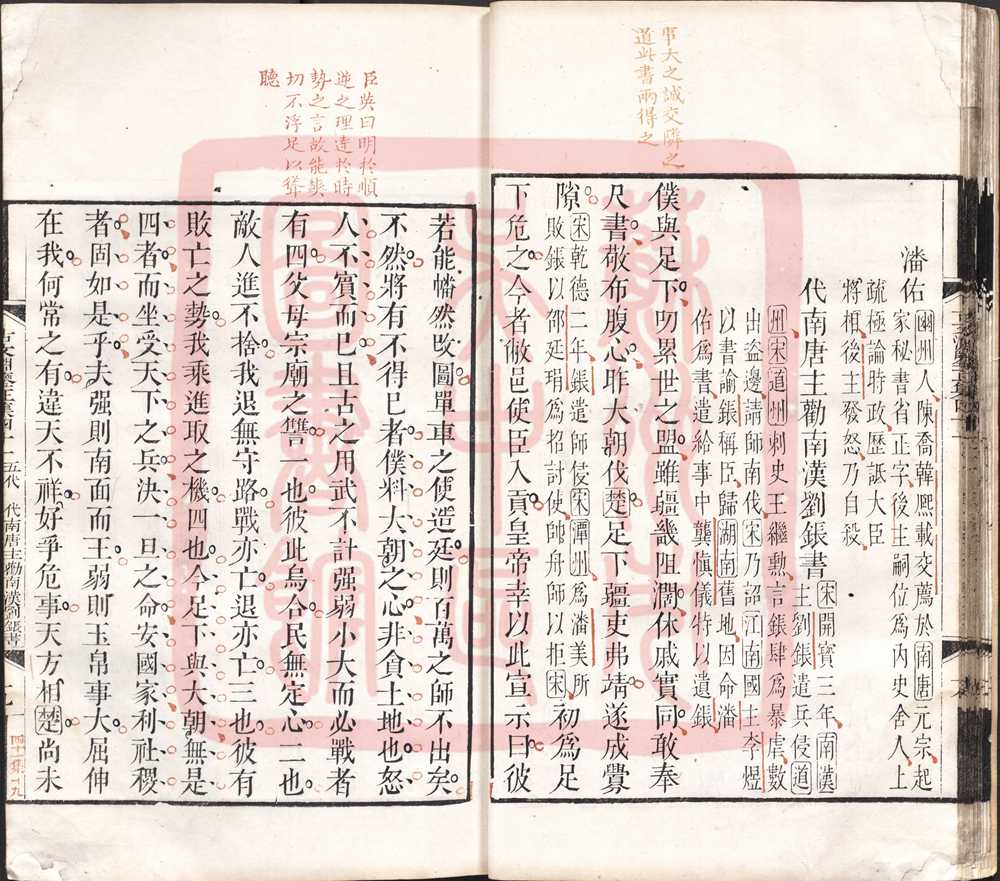 事大之誠交隣之
道此書兩得之
潘佑幽州人陳喬韓熙載交薦於南唐元宗起
家秘書省正字後主嗣位爲內史舍人上
疏極論時政歷詆大臣
將相後主發怒乃自殺
代南唐主勸南漢劉鋹書宋開寶三年南漢
主劉鋹遣兵侵道
州宋道州刺史王繼勲言鋹肆爲暴虐數
出盗邊請師南伐宋乃詔江南國主李煜
以書諭鋹稱臣歸湖南舊地因命潘
佑爲書遣給事中龔愼儀特以遺鋹
僕與足下叨累世之盟雖疆畿阻濶休戚實同敢奉
尺書敬布腹心昨大朝伐楚足下疆吏弗靖遂成釁
隙宋乾德二年鋹遣師侵宋潭州爲潘美所
敗鋹以邵廷琄爲招討使帥舟師以拒宋初爲足
下危之今者敝邑使臣入貢皇帝幸以此宣示曰彼
臣英曰明於順
逆之理達於時
勢之言故能婁
切不浮足以聳
聽
若能幡然改圖單車之使造廷則百萬之師不出矣
不然將有不得已者僕料大朝之心非貪土地也怒
人不賓而已且古之用武不計强弱小大而必戰者
有四父母宗廟之讐一也彼此烏合民無定心二也
敵人進不捨我退無守路戰亦亡退亦亡三也彼有
敗亡之勢我乘進取之機四也今足下與大朝無是
四者而坐受天下之兵決一旦之命安國家利社稷
者固如是乎夫强則南面而王弱則玉帛事大屈伸
在我何常之有違天不祥好爭危事天方相楚尚未
五代 代南唐主勸南漢劉鋹書